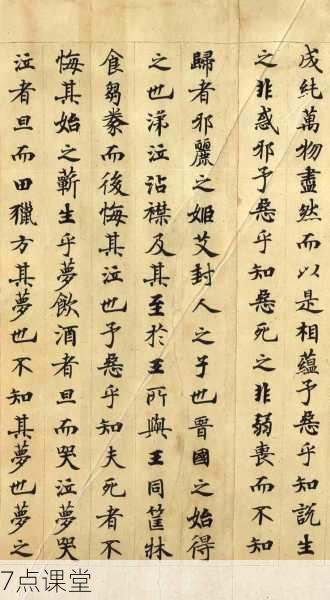 成純萬物盡然而以是相蘊予惡乎知說生
之非惑邪予惡乎知惡死之非弱喪而不知
歸者邪麗之姬艾封人之子也晉國之始得
之也涕泣沾襟及其至於王所與王同筐牀
食芻豢而後悔其泣也予惡乎知夫死者不
悔其始之蘄生乎夢飲酒者旦而哭泣夢哭
泣者旦而田獵方其夢也不知其夢也夢之
7点课堂